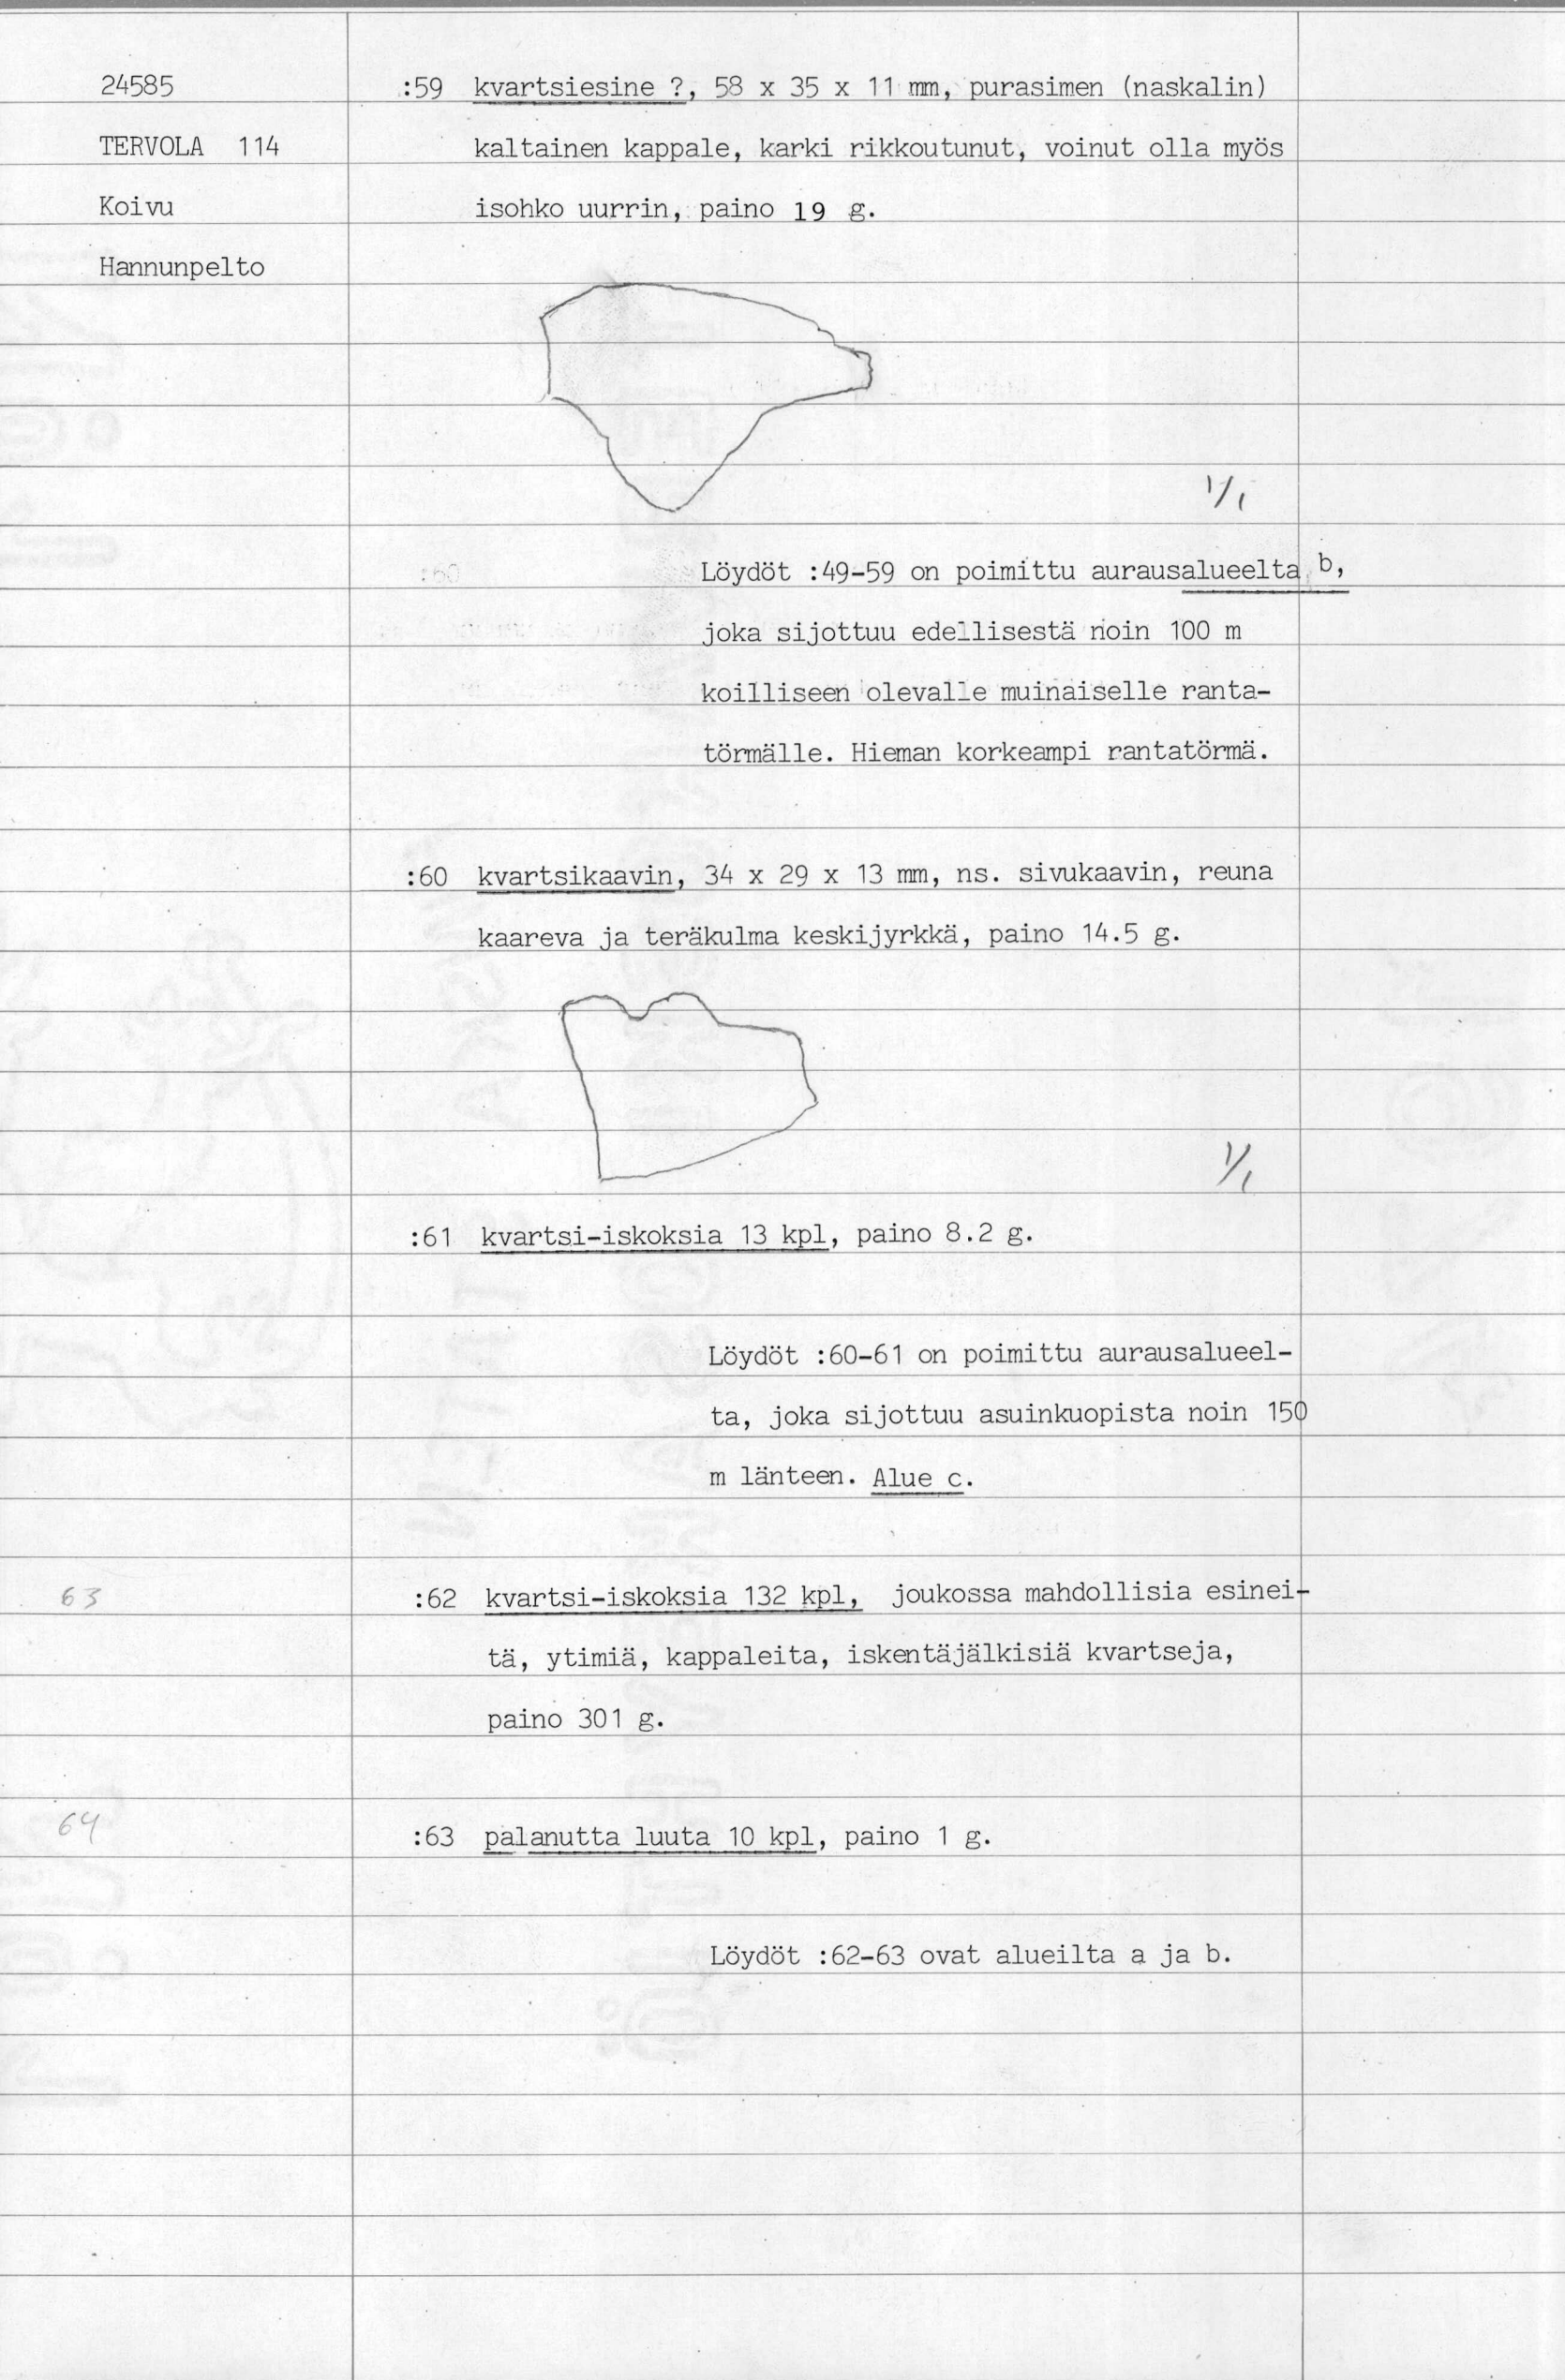 24585
TERVOLA 114
Koivu
Hannunpelto
:59 kvartsiesine ?, 58 x 35 x 11 mm, purasimen (naskalin)
kaltainen kappale, karki rikkoutunut, voinut olla myös
isohko uurrin, paino 19 g.
1/1
Löydöt :49-59 on poimittu aurausalueelta b,
joka sijottuu edellisestä noin 100 m
koilliseen olevalle muinaiselle ranta-
törmälle. Hieman korkeampi rantatörmä.
:60 kvartsikaavin, 34 x 29 x 13 mm, ns. sivukaavin, reuna
kaareva ja teräkulma keskijyrkkä, paino 14.5 g.
1/1
:61 kvartsi-iskoksia 13 kpl, paino 8.2 g.
Löydöt :60-61 on poimittu aurausalueel-
ta, joka sijottuu asuinkuopista noin 150
m länteen. Alue c.
63
:62 kvartsi-iskoksia 132 kpl, joukossa mahdollisia esinei-
tä, ytimiä, kappaleita, iskentäjälkisiä kvartseja,
paino 301 g.
64
:63 palanutta luuta 10 kpl, paino 1 g.
Löydöt :62-63 ovat alueilta a ja b.